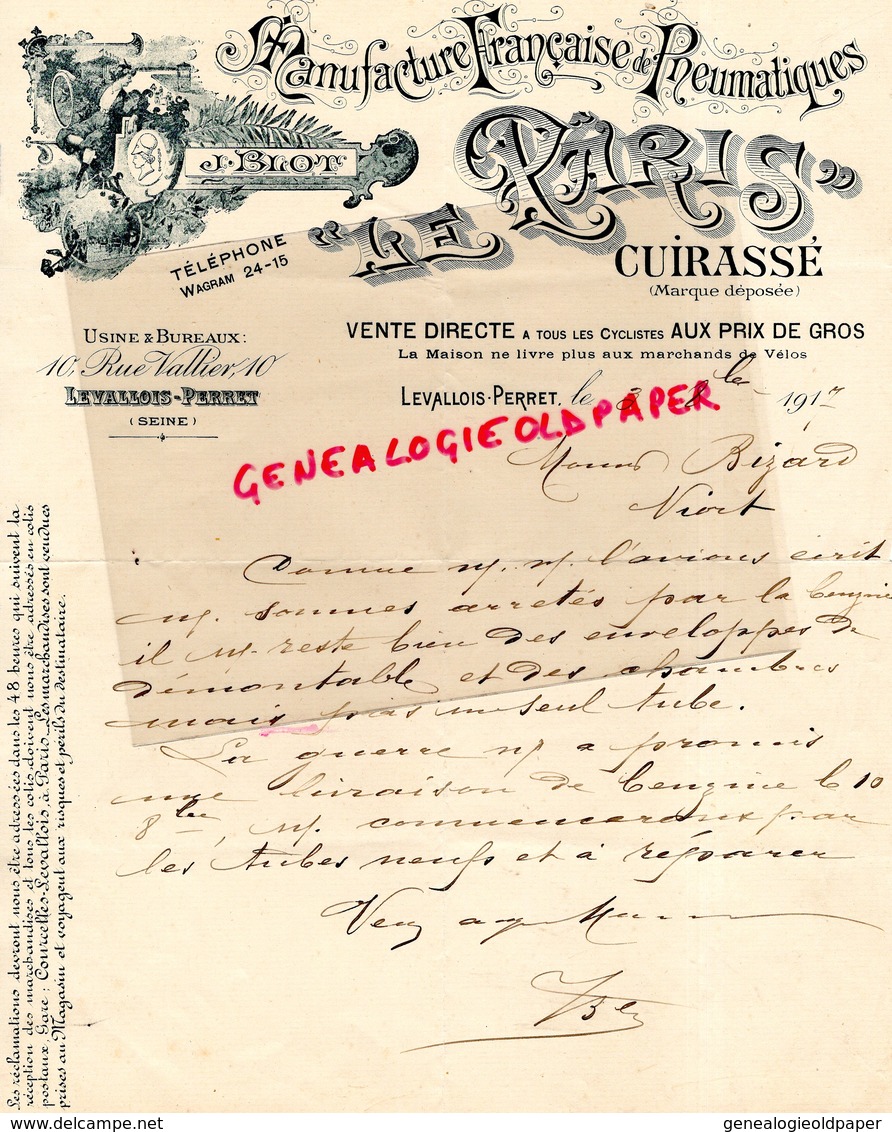 Manufacture Française de Pneumatiques
J. BLOT
"LE PÂRIS"
CUIRASSÉ
(Marque déposée)
TÉLÉPHONE
WAGRAM 24-15
USINE & BUREAUX:
10, Rue Vallier, 10
LEVALLOIS-PERRET
(SEINE)
VENTE DIRECTE A TOUS LES CYCLISTES AUX PRIX DE GROS
La Maison ne livre plus aux marchands de Vélos
LEVALLOIS-PERRET, le 3 8bre 1917
GENEALOGIEOLDPAPER
Bizard
Niort
Comme n. n. l'avions écrit
n. sommes arretés par la benzine
il n. reste bien des enveloppes de
démontable et des chambres
mais pas un seul tube.
La guerre n. a promis
une livraison de benzine le 10
8bre, n. commencerons par
les tubes neufs et à réparer
Les réclamations devront nous être adressées dans les 48 heures qui suivent la
réception des marchandises et tous les colis doivent nous être adressés en colis
postaux, Gare: Courcelles-Levallois, à Paris. Les marchandises sont vendues
prises au Magasin et voyagent aux risques et périls du destinataire.
www.delcampe.net
genealogieoldpaper